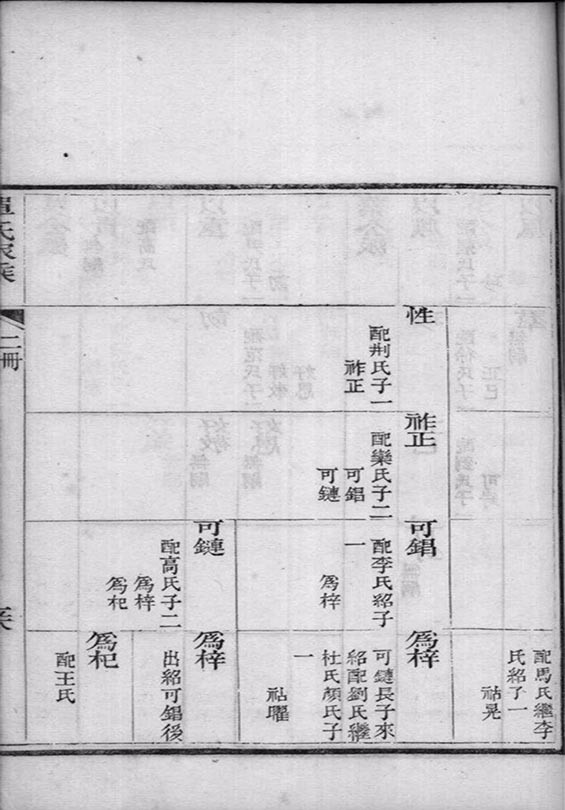 配馬氏繼李
氏紹子一
祜晃
性
配荆氏子一
祚正
祚正
配欒氏子二
可錩
可鏈
可錩
配李氏紹子
一
為梓
為梓
可鏈長子來
紹配劉氏繼
杜氏顏氏子
一
祜曜
可鏈
配高氏子二
為梓
為杞
為梓
出紹可錩後
為杞
配王氏
氏家族
二冊